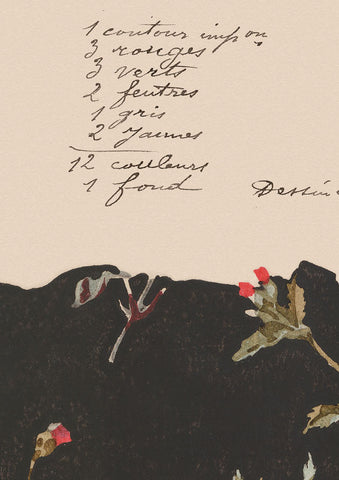 1 contour imp on
3 rouges
3 verts
2 feutres
1 gris
2 Jaunes
12 couleurs
1 fond
Dessin